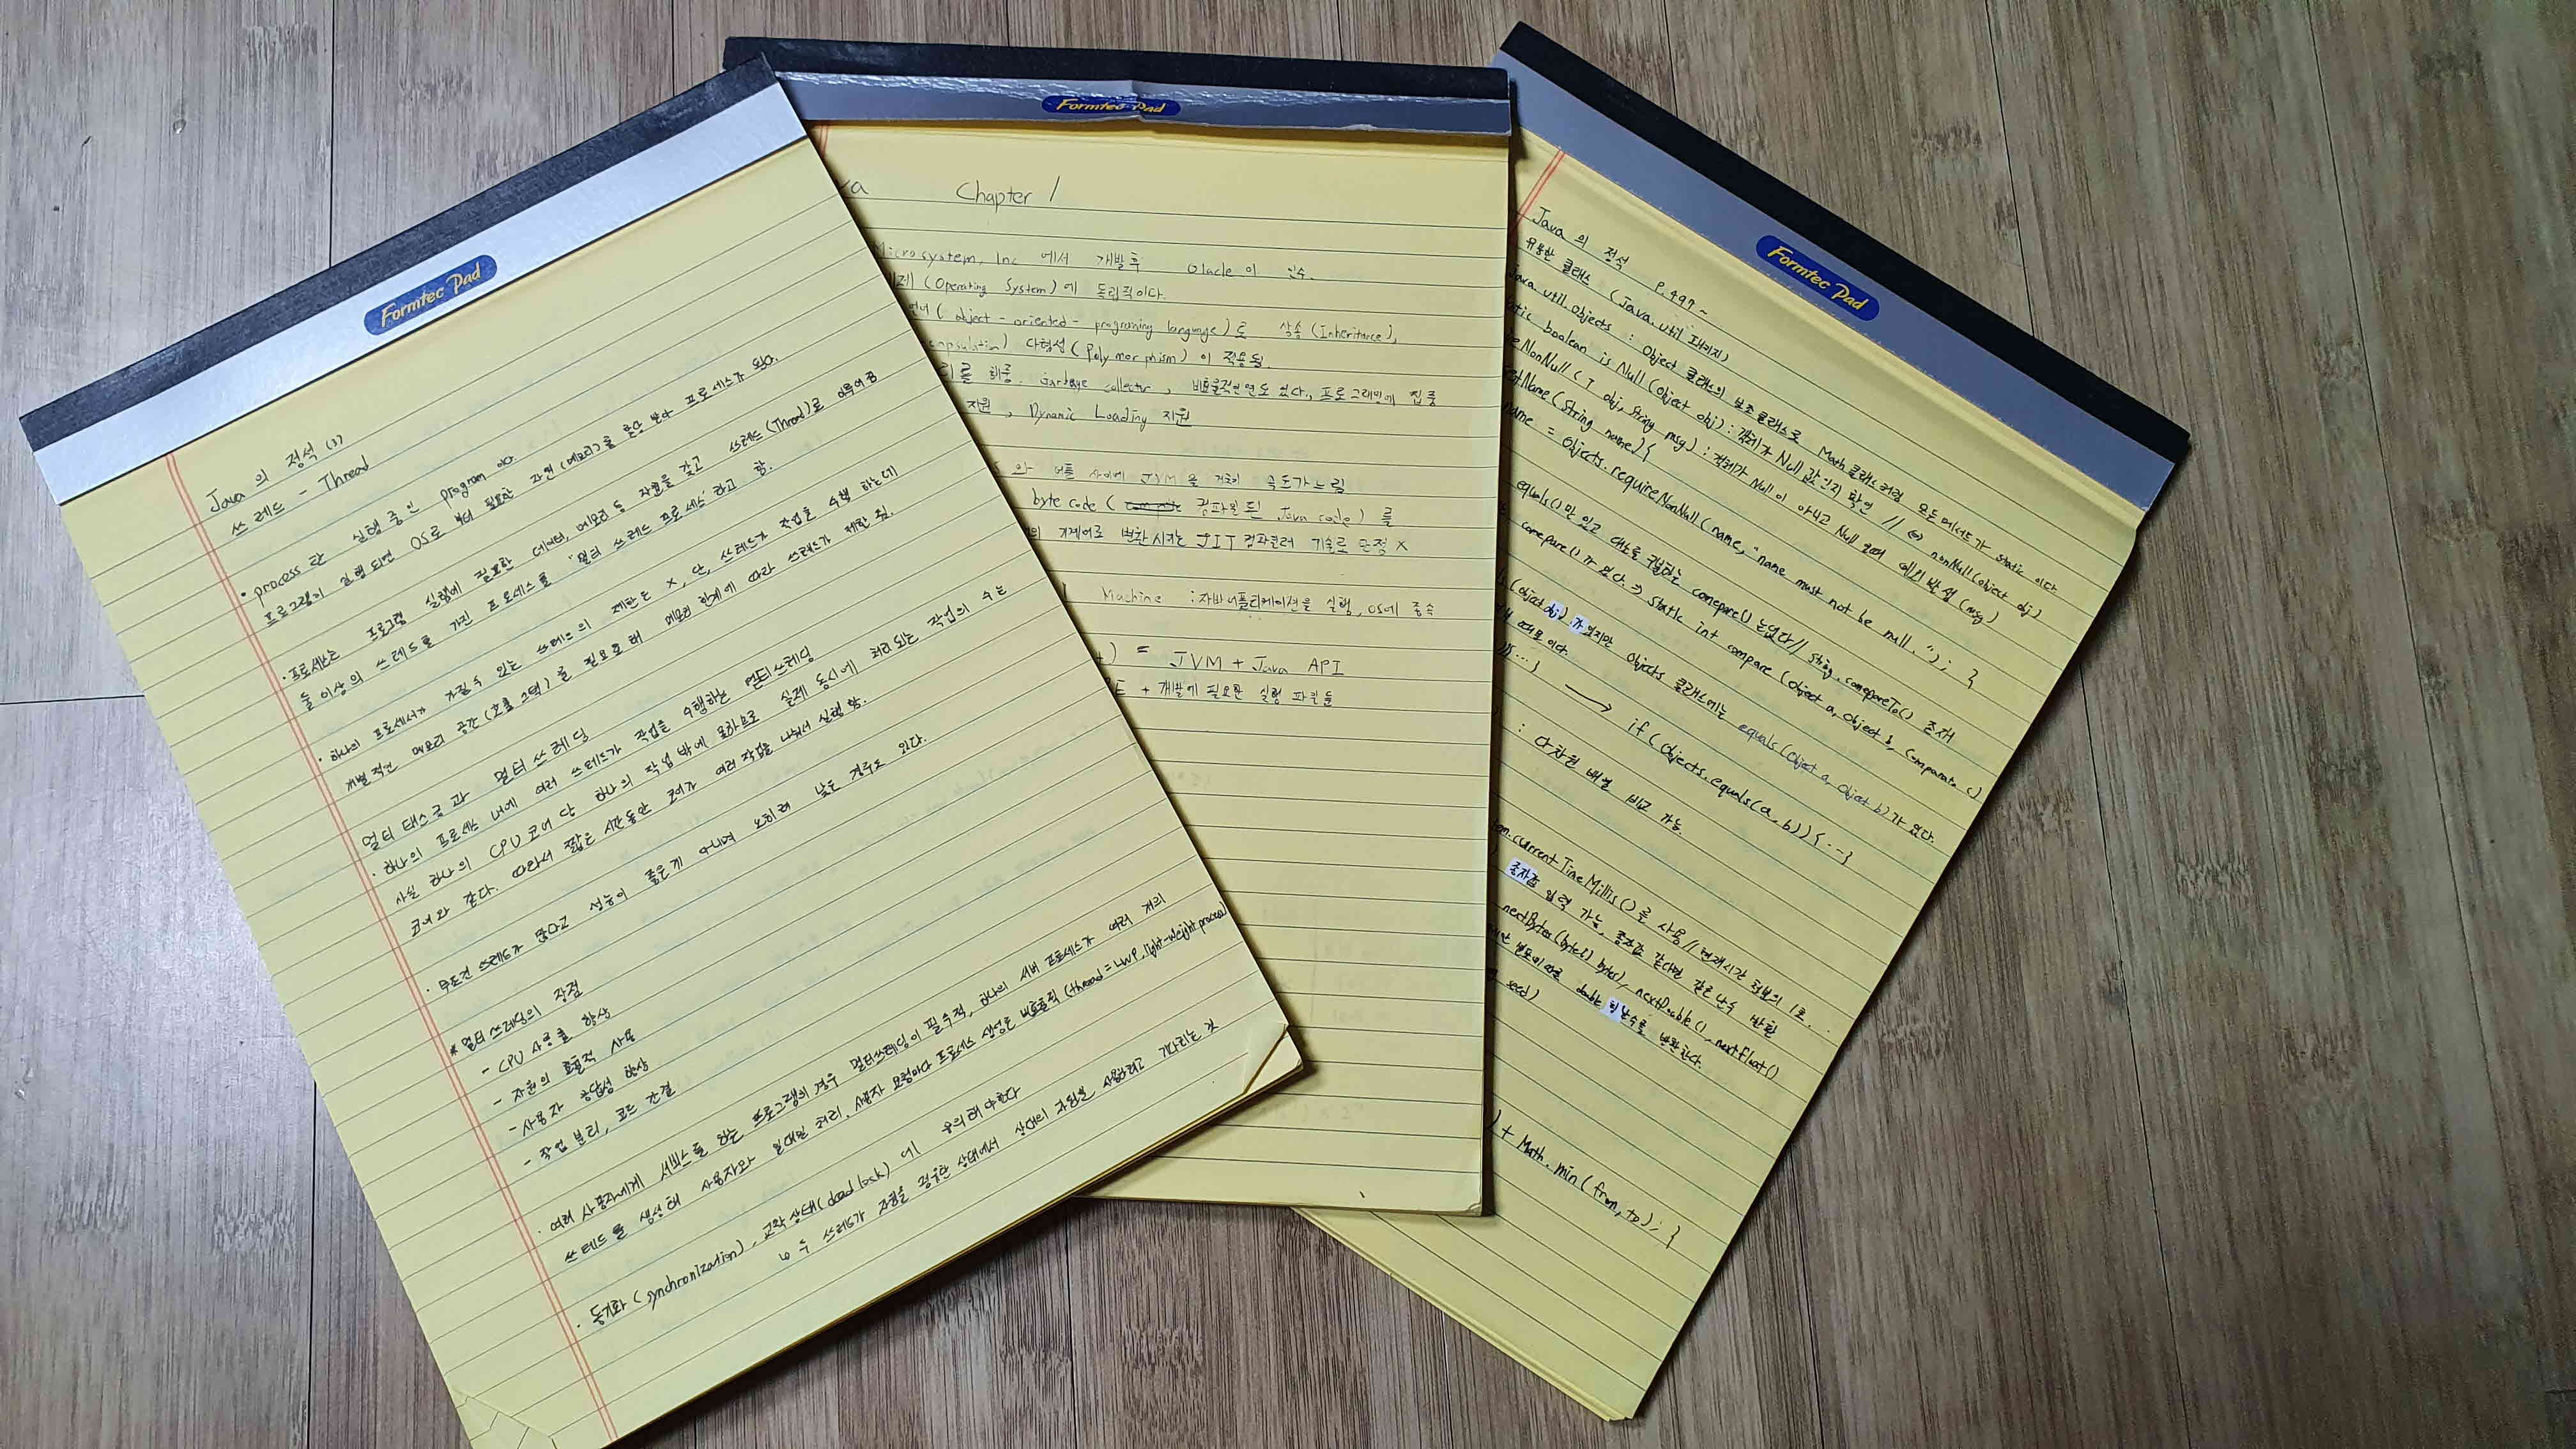 Formtec Pad
Java 의 정석 (3)
쓰레드 - Thread
· process 란 실행 중인 program 이다.
프로그램이 실행되면 OS로 부터 필요한 자원(메모리)를 할당 받아 프로세스가 된다.
· 프로세스는 프로그램 실행에 필요한 데이터, 메모리 등 자원을 갖고 쓰레드(Thread)로 이루어짐
둘 이상의 쓰레드를 가진 프로세스를 "멀티 쓰레드 프로세스"라고 함.
· 하나의 프로세서가 가질 수 있는 쓰레드의 제한은 X, 단, 쓰레드가 작업을 수행 하는데
개별적인 메모리 공간(호출 스택)을 필요로 해 메모리 한계에 따라 쓰레드가 제한 됨.
멀티 태스킹과 멀티 쓰레딩
· 하나의 프로세스 내에 여러 쓰레드가 작업을 수행하는 멀티쓰레딩
사실 하나의 CPU 코어 당 하나의 작업 밖에 못하므로 실제 동시에 처리되는 작업의 수는
코어와 같다. 따라서 짧은 시간동안 코어가 여러 작업을 나눠서 실행 함.
· 무조건 쓰레드가 많다고 성능이 좋은게 아니며 오히려 낮은 경우도 있다.
* 멀티 쓰레딩의 장점
- CPU 사용률 향상
- 자원의 효율적 사용
- 사용자 응답성 향상
- 작업 분리, 코드 간결
· 여러 사용자에게 서비스를 하는 프로그램의 경우 멀티쓰레딩이 필수적, 하나의 서버 프로세스가 여러 개의
쓰레드를 생성해 사용자와 일대일 처리, 사용자 요청마다 프로세스 생성은 비효율적 (thread = LWP, light-weight process)
· 동기화 (synchronization), 교착상태(dead lock) 에 유의해야한다
↳ 두 쓰레드가 자원을 점유한 상태에서 상대의 자원을 사용하려고 기다리는 것
Formtec Pad
va Chapter 1
Microsystem, Inc 에서 개발 후 Olacle 이 인수.
제 (Operating System) 에 독립적이다.
언어( object - oriented - programing language) 로 상속 (Inheritance),
capsulation) 다형성 (Polymorphism) 이 적용됨.
리를 해줌. Garbage collector, 비효율적인면도 있다., 프로그래밍에 집중
지원, Dynamic Loading 지원
와 어플 사이에 JVM 을 거쳐 속도가느림
byte code ( 컴파일 된 Java code) 를
의 기계어로 변환시키는 JIT 컴파일러 기술로 단점 X
Machine : 자바어플리케이션을 실행, OS에 종속
) = JVM + Java API
E + 개발에 필요한 실행 파일들
Formtec Pad
Java 의 정석 P.497 ~
유용한 클래스 (Java.util 패키지)
java.util.Objects : Object 클래스의 보조클래스로 Math클래스처럼 모든 메서드가 static 이다
tic boolean isNull (Object obj) : 객체가 Null 값인지 확인 // ↔ nonNull (Object obj)
eNonNull (T obj, String msg) : 객체가 Null 이 아니고 Null 일때 예외 발생 (msg)
etName (String name) {
name = Objects.requireNonNull (name, "name must not be null."); }
equals()만 있고 대소를 구별하는 compare()는없다 // String.compareTo() 존재
compare()가 있다. ⇒ static int compare (Object a, Object b, Comparator c)
(object obj) 가 있지만 Objects 클래스에는 equals(Object a, Object b)가 있다.
){...} ⟶ if (Objects.equals(a, b)) { .. }
: 다차원 배열 비교 가능.
em.currentTimeMillis()를 사용 // 현재시간 정보의 1로..
종자값 입력 가능, 종자값 같다면 같은 난수 반환
nextBytes(byte[] bytes), nextDouble(), nextFloat()
double 형 난수를 반환한다.
seed)
) + Math.min (from, to); }